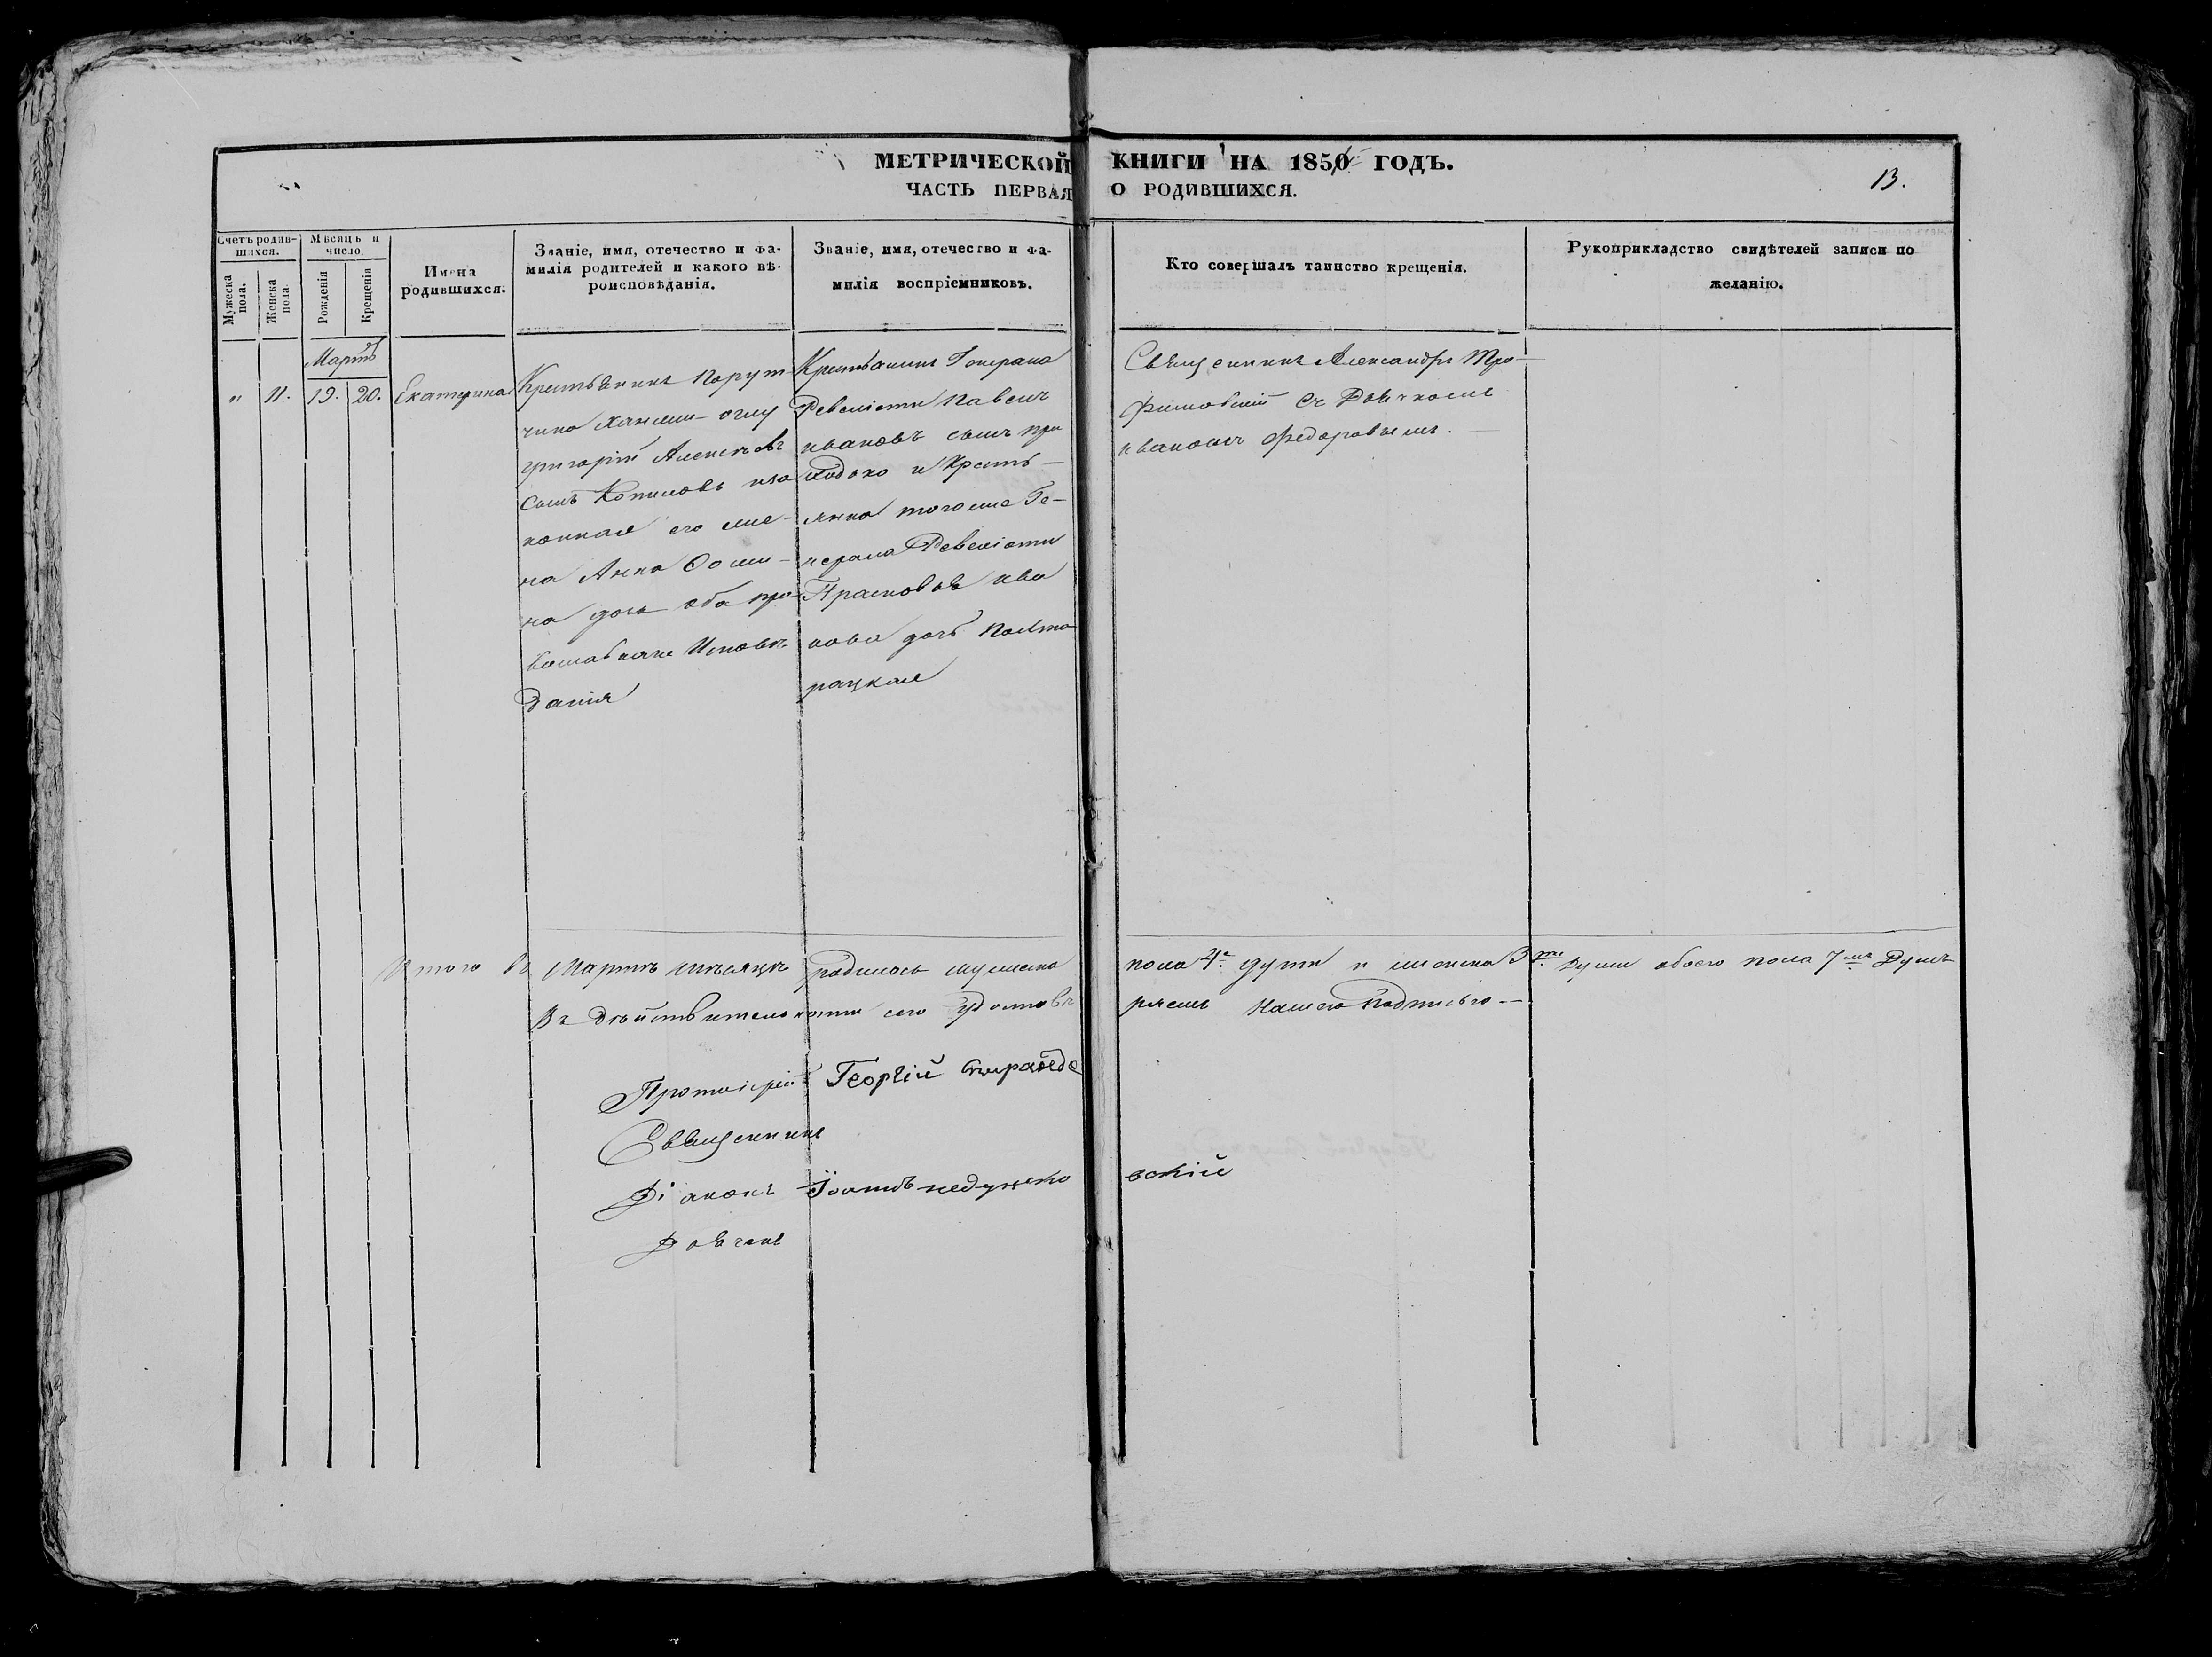 МЕТРИЧЕСКОЙ КНИГИ НА 1850 ГОДЪ.
ЧАСТЬ ПЕРВАЯ О РОДИВШИХСЯ.
13.
Счетъ родив-
шихся.
Мужеска
пола.
Женска
пола.
Мѣсяцъ и
число.
Рожденія
Крещенія
Имена
родившихся.
Званіе, имя, отечество и фа-
милія родителей и какого вѣ-
роисповѣданія.
Званіе, имя, отечество и фа-
милія воспріемниковъ.
Кто совершалъ таинство крещенія.
Рукоприкладство свидѣтелей записи по
желанію.
Мартъ
" 11. 19. 20. Екатерина
Крестьянинъ Порут-
чика оглу
григорій Алексѣевъ
сынъ Копиловъ иза
конная его же-
на Анна
на дочь оба пра
вославнаго Исповѣ
данія
Крестьянинъ Генерала
Ревеліоти Павелъ
ивановъ сынъ При
ходько и Кресть-
янка тогоже Ге-
нерала Ревеліоти
Прасковья ива
нова дочь Полта
рацкая
Священникъ Александръ Тро-
фимовскій Съ Дьячкомъ
иваномъ Федоровымъ.
Итого въ Мартѣ мѣсяцѣ родилось мужеска пола 4е души и женска 3ти души обоего пола 7мь Душъ
Въ дѣйствительности сего удостовѣ ряемъ Нашею Подписью -
Протоіерей Георгій
Священникъ
Діаконъ Іоаннъ недужко вскій
Дьячекъ